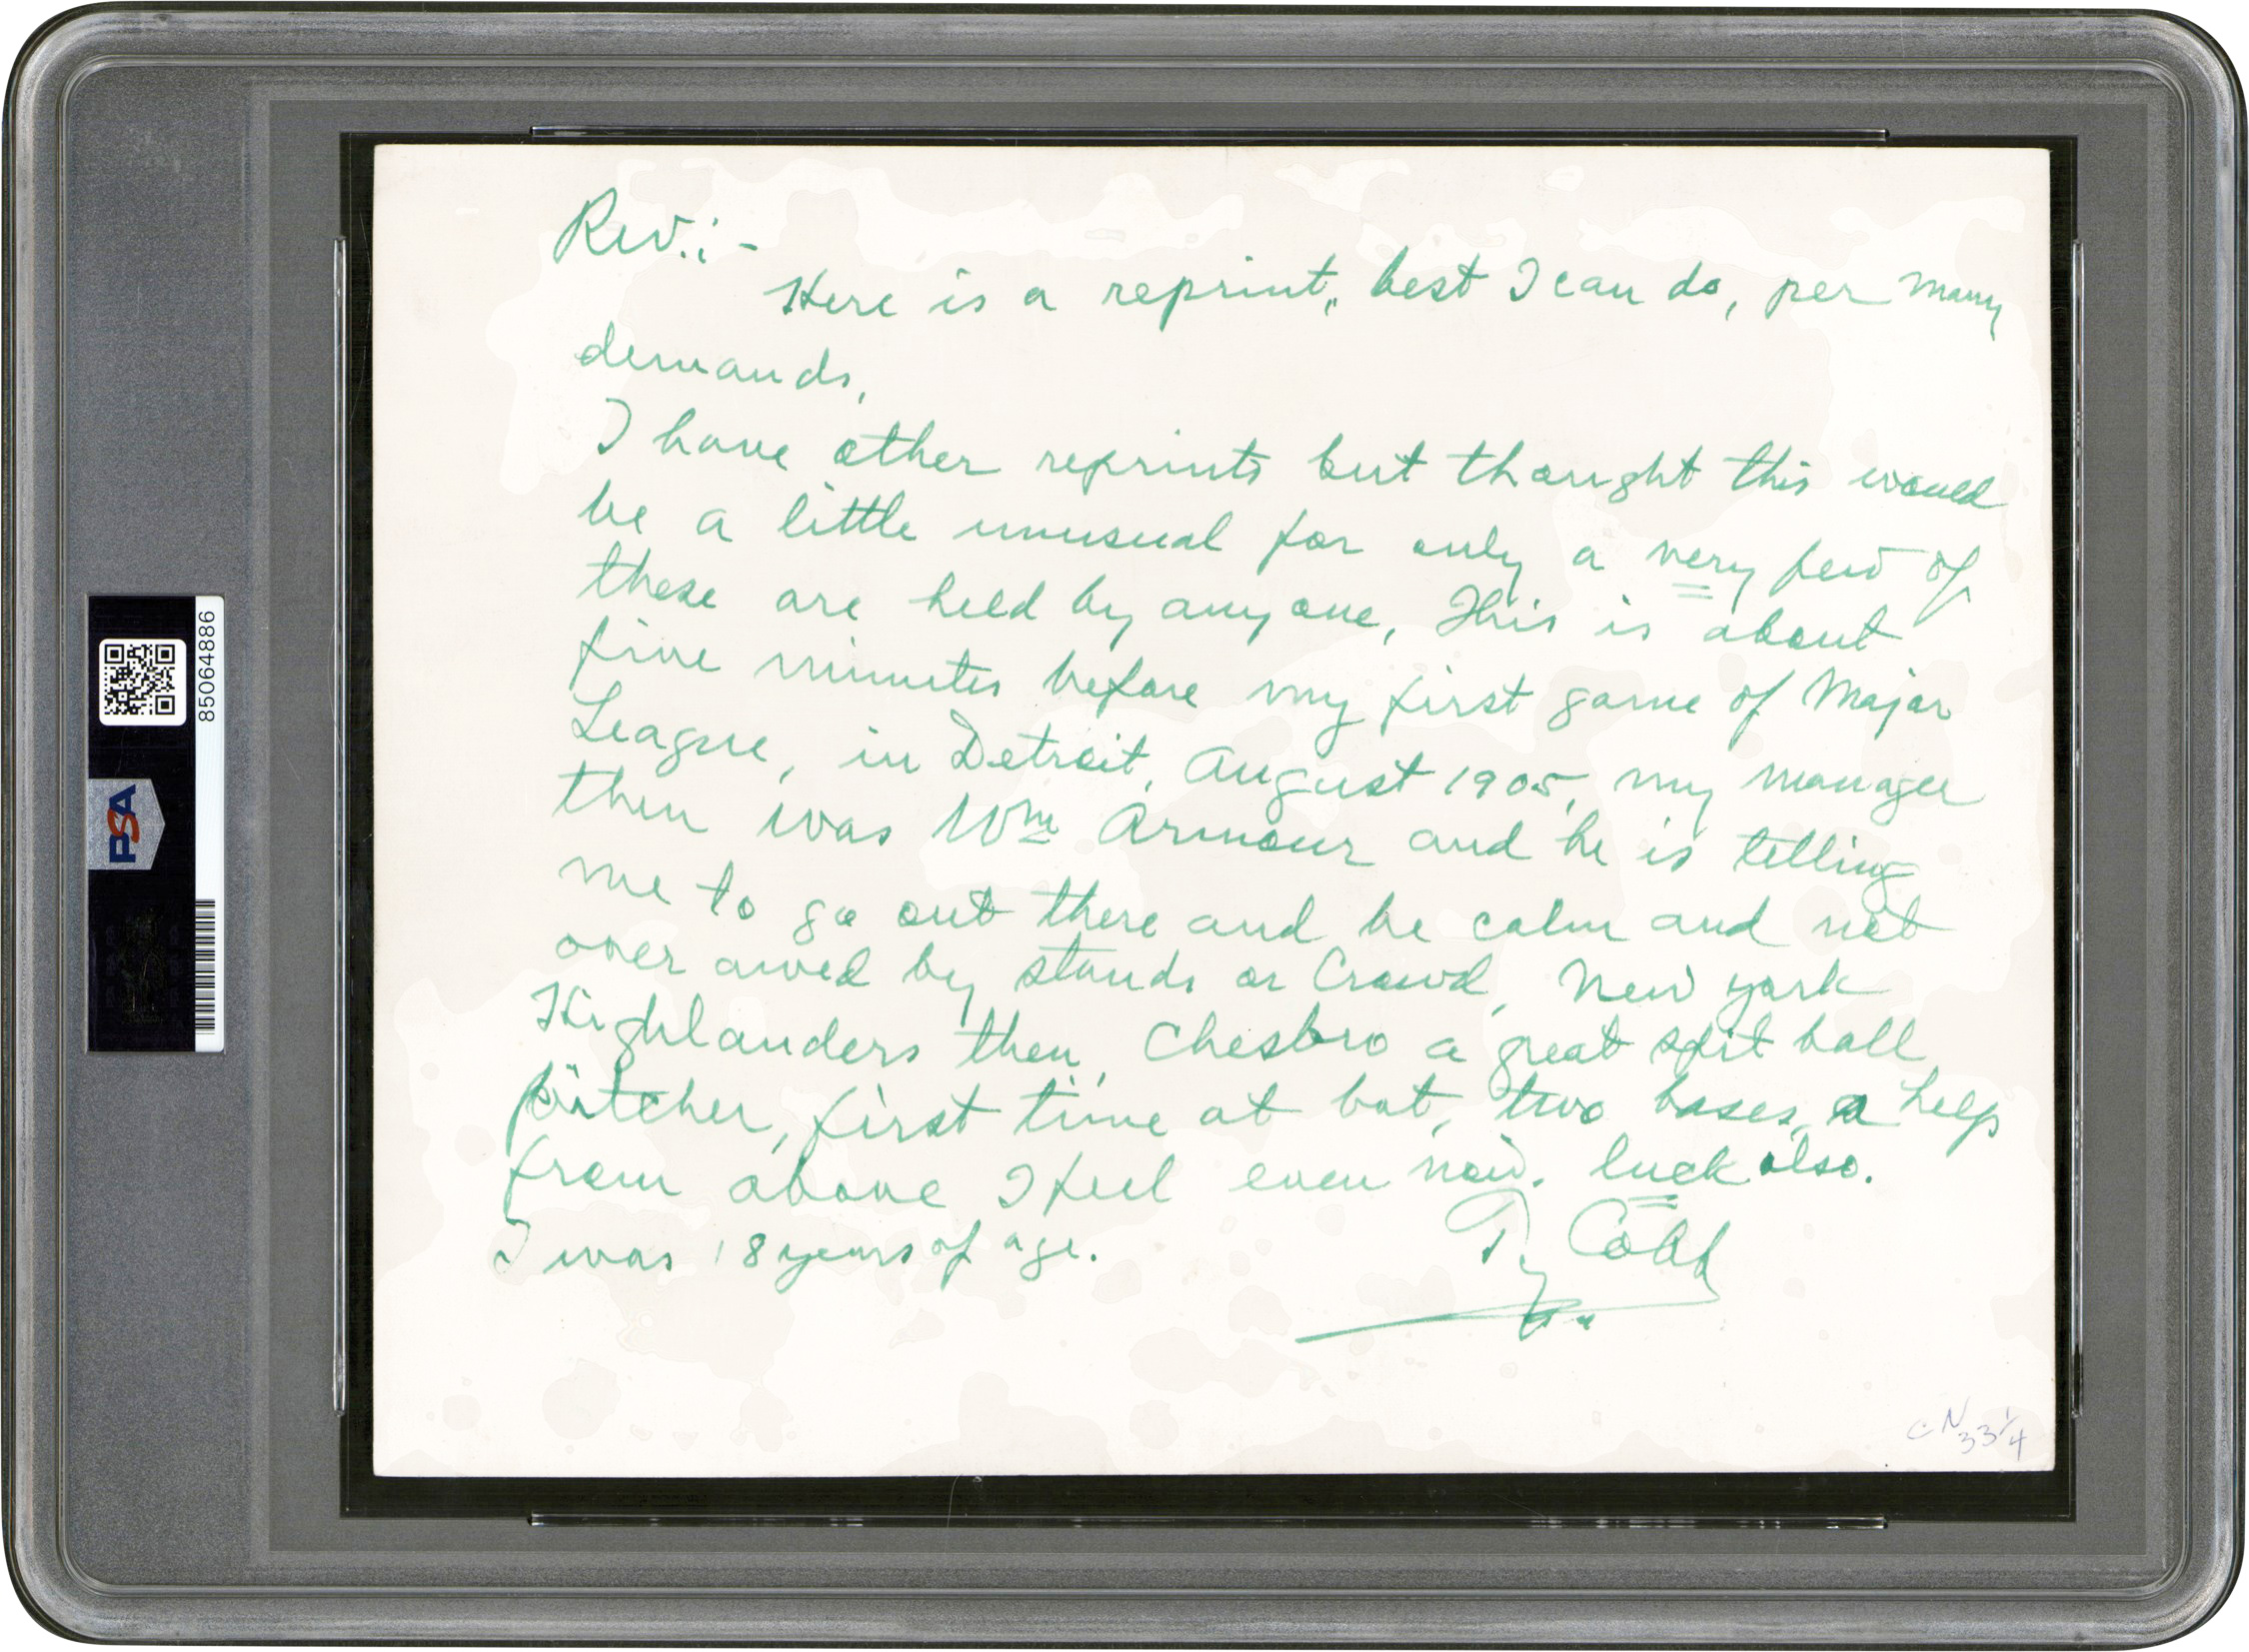 Rev.: -
Here is a reprint, best I can do, per many
demands,
I have other reprints but thought this would
be a little unusual for only a very few of
these are held by anyone, This is about
five minutes before my first game of Major
League, in Detroit, August 1905, my manager
then was Wm Armour and he is telling
me to go out there and be calm and not
over awed by stands or Crowd, New York
Highlanders then, Chesbro a great spit ball
pitcher, first time at bat, two bases, a help
from above I feel even now. luck also.
I was 18 years of age.
Ty Cobb
CN 33 1/4
PSA
85064886